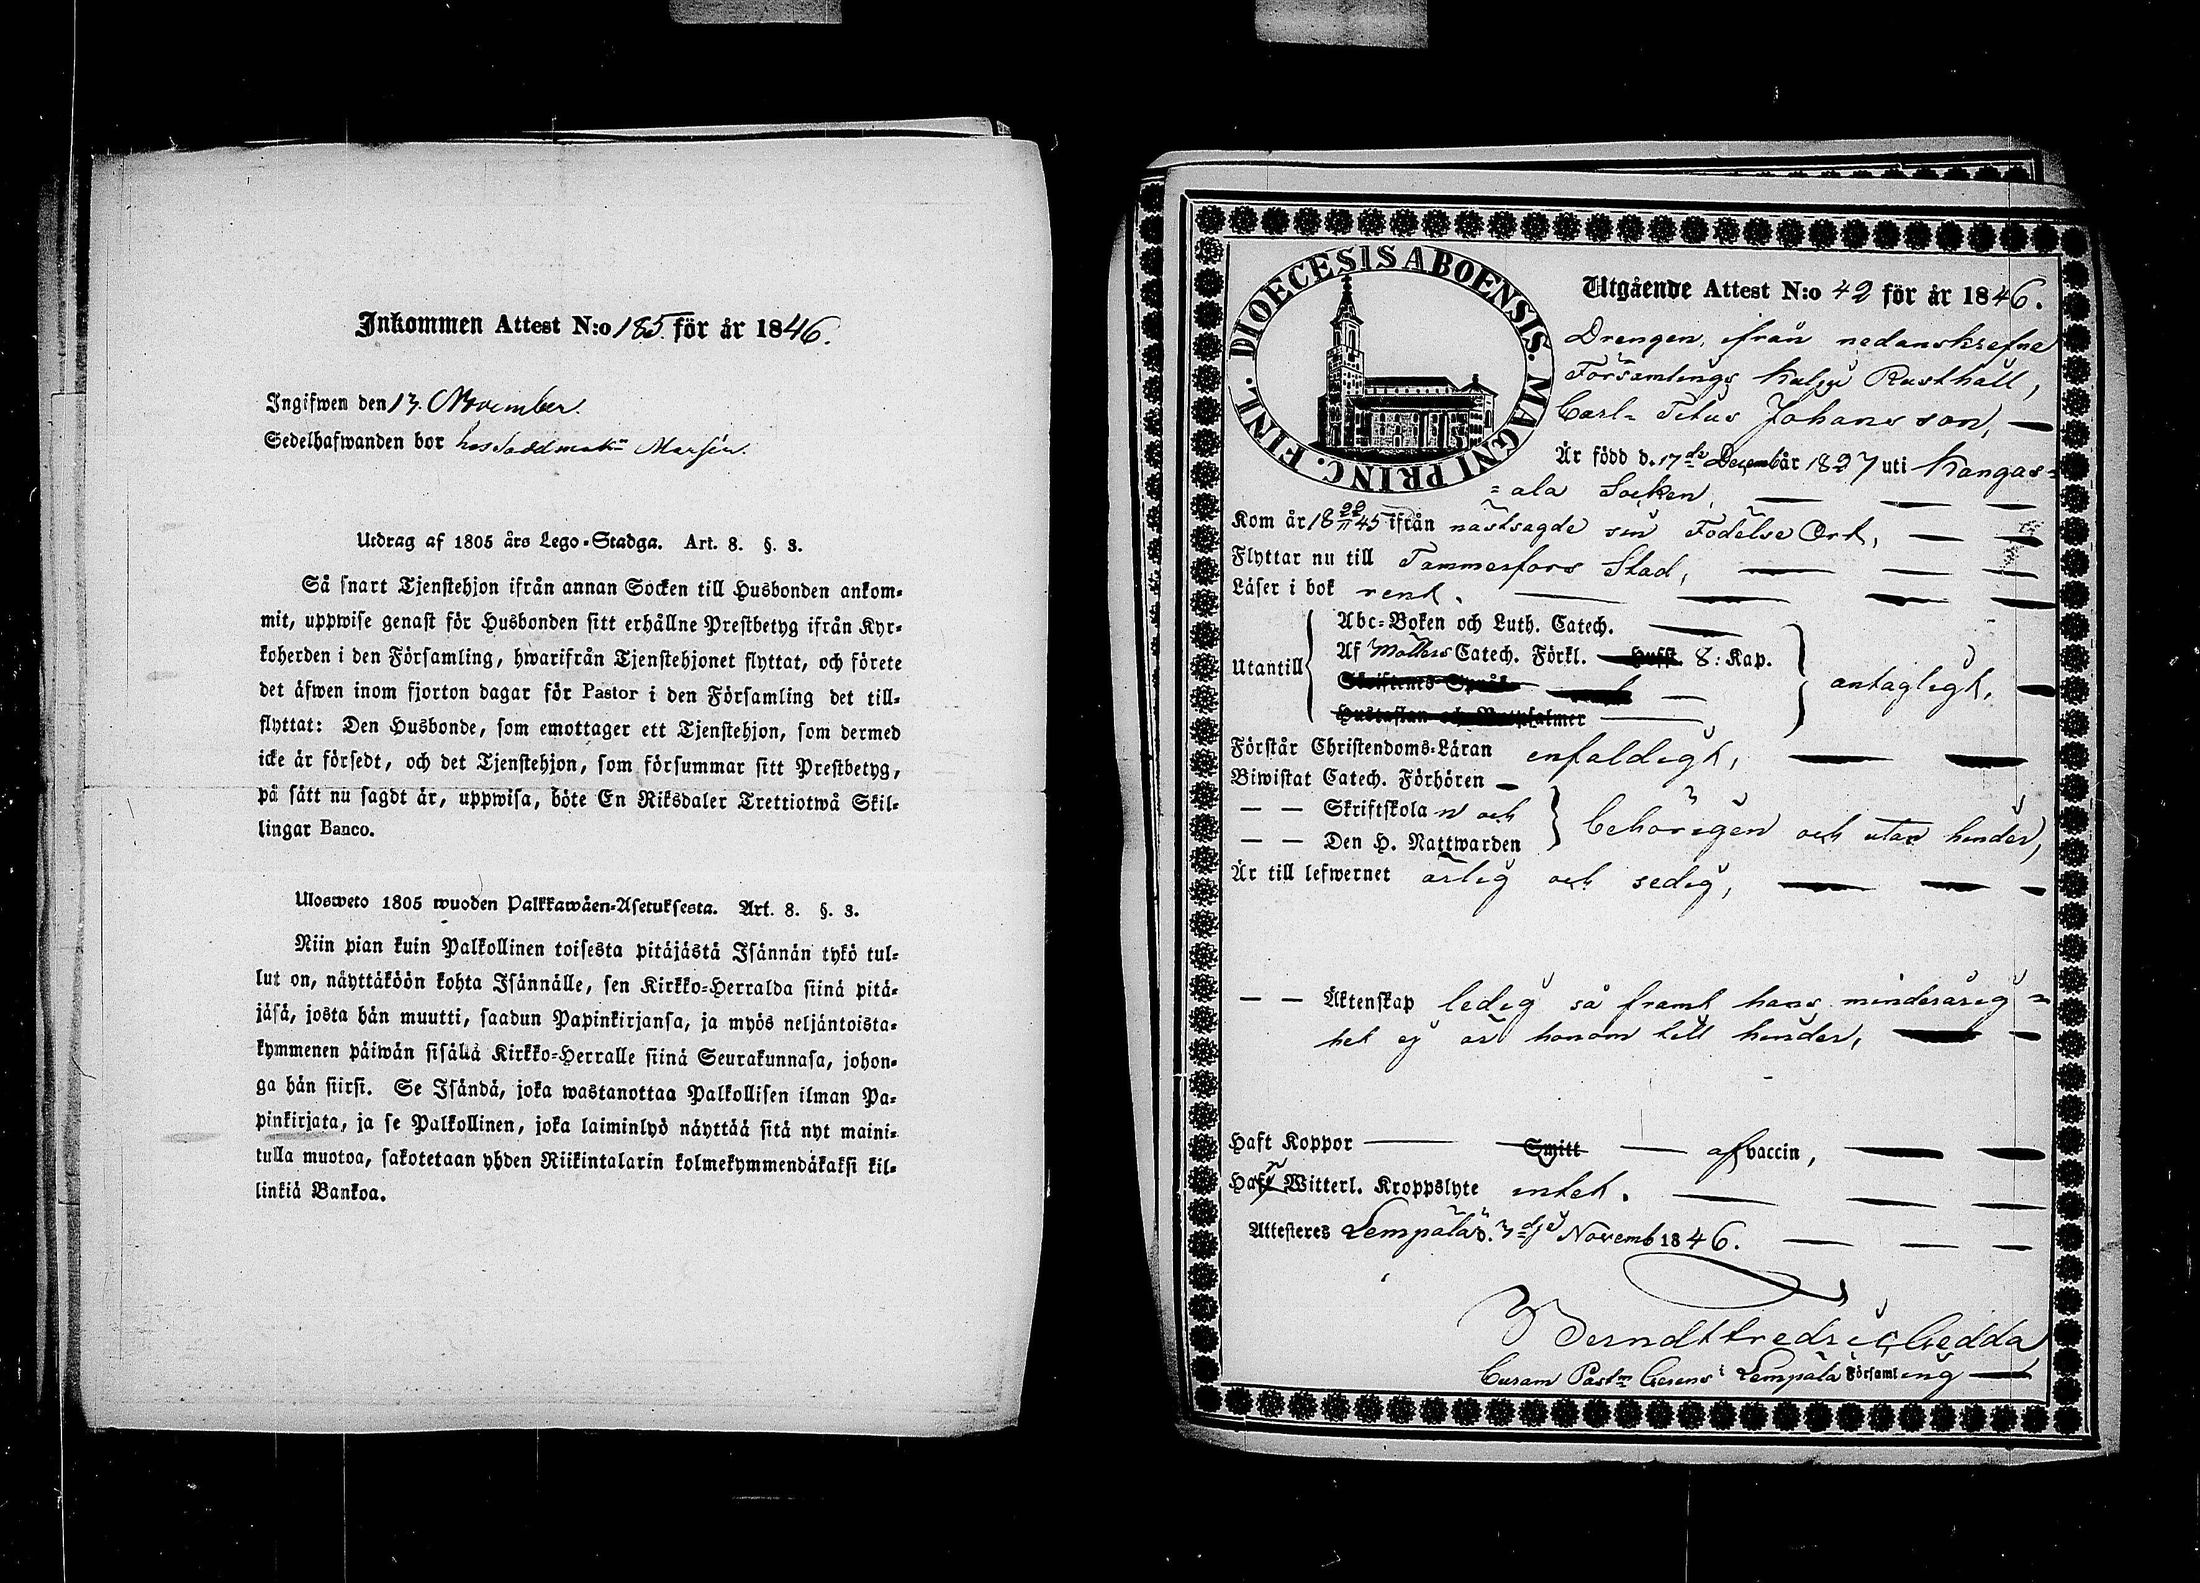 Inkommen Attest N:o 185 för år 1846.
Ingifwen den 13. November.
Sedelhafwanden bor hos
Utdrag af 1805 års Lego-Stadga. Art. 8. §. 3.
Så snart Tjenstehjon ifrån annan Socken till Husbonden ankom-
mit, uppwise genast för Husbonden sitt erhållne Prestbetyg ifrån Kyr-
koherden i den Församling, hwarifrån Tjenstehjonet flyttat, och förete
det äfwen inom fjorton dagar för Pastor i den Församling det till-
flyttat: Den Husbonde, som emottager ett Tjenstehjon, som dermed
icke är försedt, och det Tjenstehjon, som försummar sitt Prestbetyg,
på sätt nu sagdt är, uppwisa, böte En Riksdaler Trettiotwå Skil-
lingar Banco.
Ulosweto 1805 wuoden Palkkawäen-Asetuksesta. Art. 8. §. 3.
Niin pian kuin Palkollinen toisesta pitäjästä Isännän tykö tul-
lut on, näyttäköön kohta Isännälle, sen Kirkko-Herralda siinä pitä-
jäsä, josta hän muutti, saadun Papinkirjansa, ja myös neljäntoista-
kymmenen päiwän sisällä Kirkko-Herralle siinä Seurakunnasa, johon-
ga hän siirsi. Se Isändä, joka wastanottaa Palkollisen ilman Pa-
pinkirjata, ja se Palkollinen, joka laiminlyö näyttää sitä nyt maini-
tulla muotoa, sakotetaan yhden Riikintalarin kolmekymmendäkaksi kil-
linkiä Bankoa.
DIOECESIS ABOENSIS. MAGNI PRINC. FINL.
Utgående Attest N:o 42 för år 1846.
Drengen, ifrån nedanskrefne
Församlings Kulju Rusthåll,
Carl Titus Johansson,
Är född d. 17de Decemb år 1827 uti Kangas=
=ala Socken,
Kom år 18 22/11 45 ifrån nästsagde sin Födelse Ort,
Flyttar nu till Tammerfors Stad,
Läser i bok rent.
Utantill
Abc-Boken och Luth. Catech.
Af Möllers Catech. Förkl. Hufst. 8: Kap.
Skriftenes Språk
Hustaflan och Botpsalmer
antagligt,
Förstår Christendoms-Läran enfaldigt,
Biwistat Catech. Förhören
— — Skriftskolan och
— — Den H. Nattwarden
behörigen och utan hinder,
Är till lefwernet ärlig och sedig,
— — Äktenskap ledig så framt hans minderårig=
het ej är honom till hinder,
Haft Koppor Smitt af vaccin,
Har Witterl. Kroppslyte intet.
Attesteras Lempälä d. 3dje Novemb 1846.
Berndt Fredric Gedda
Curam Past. Gerens i Lempälä Församling